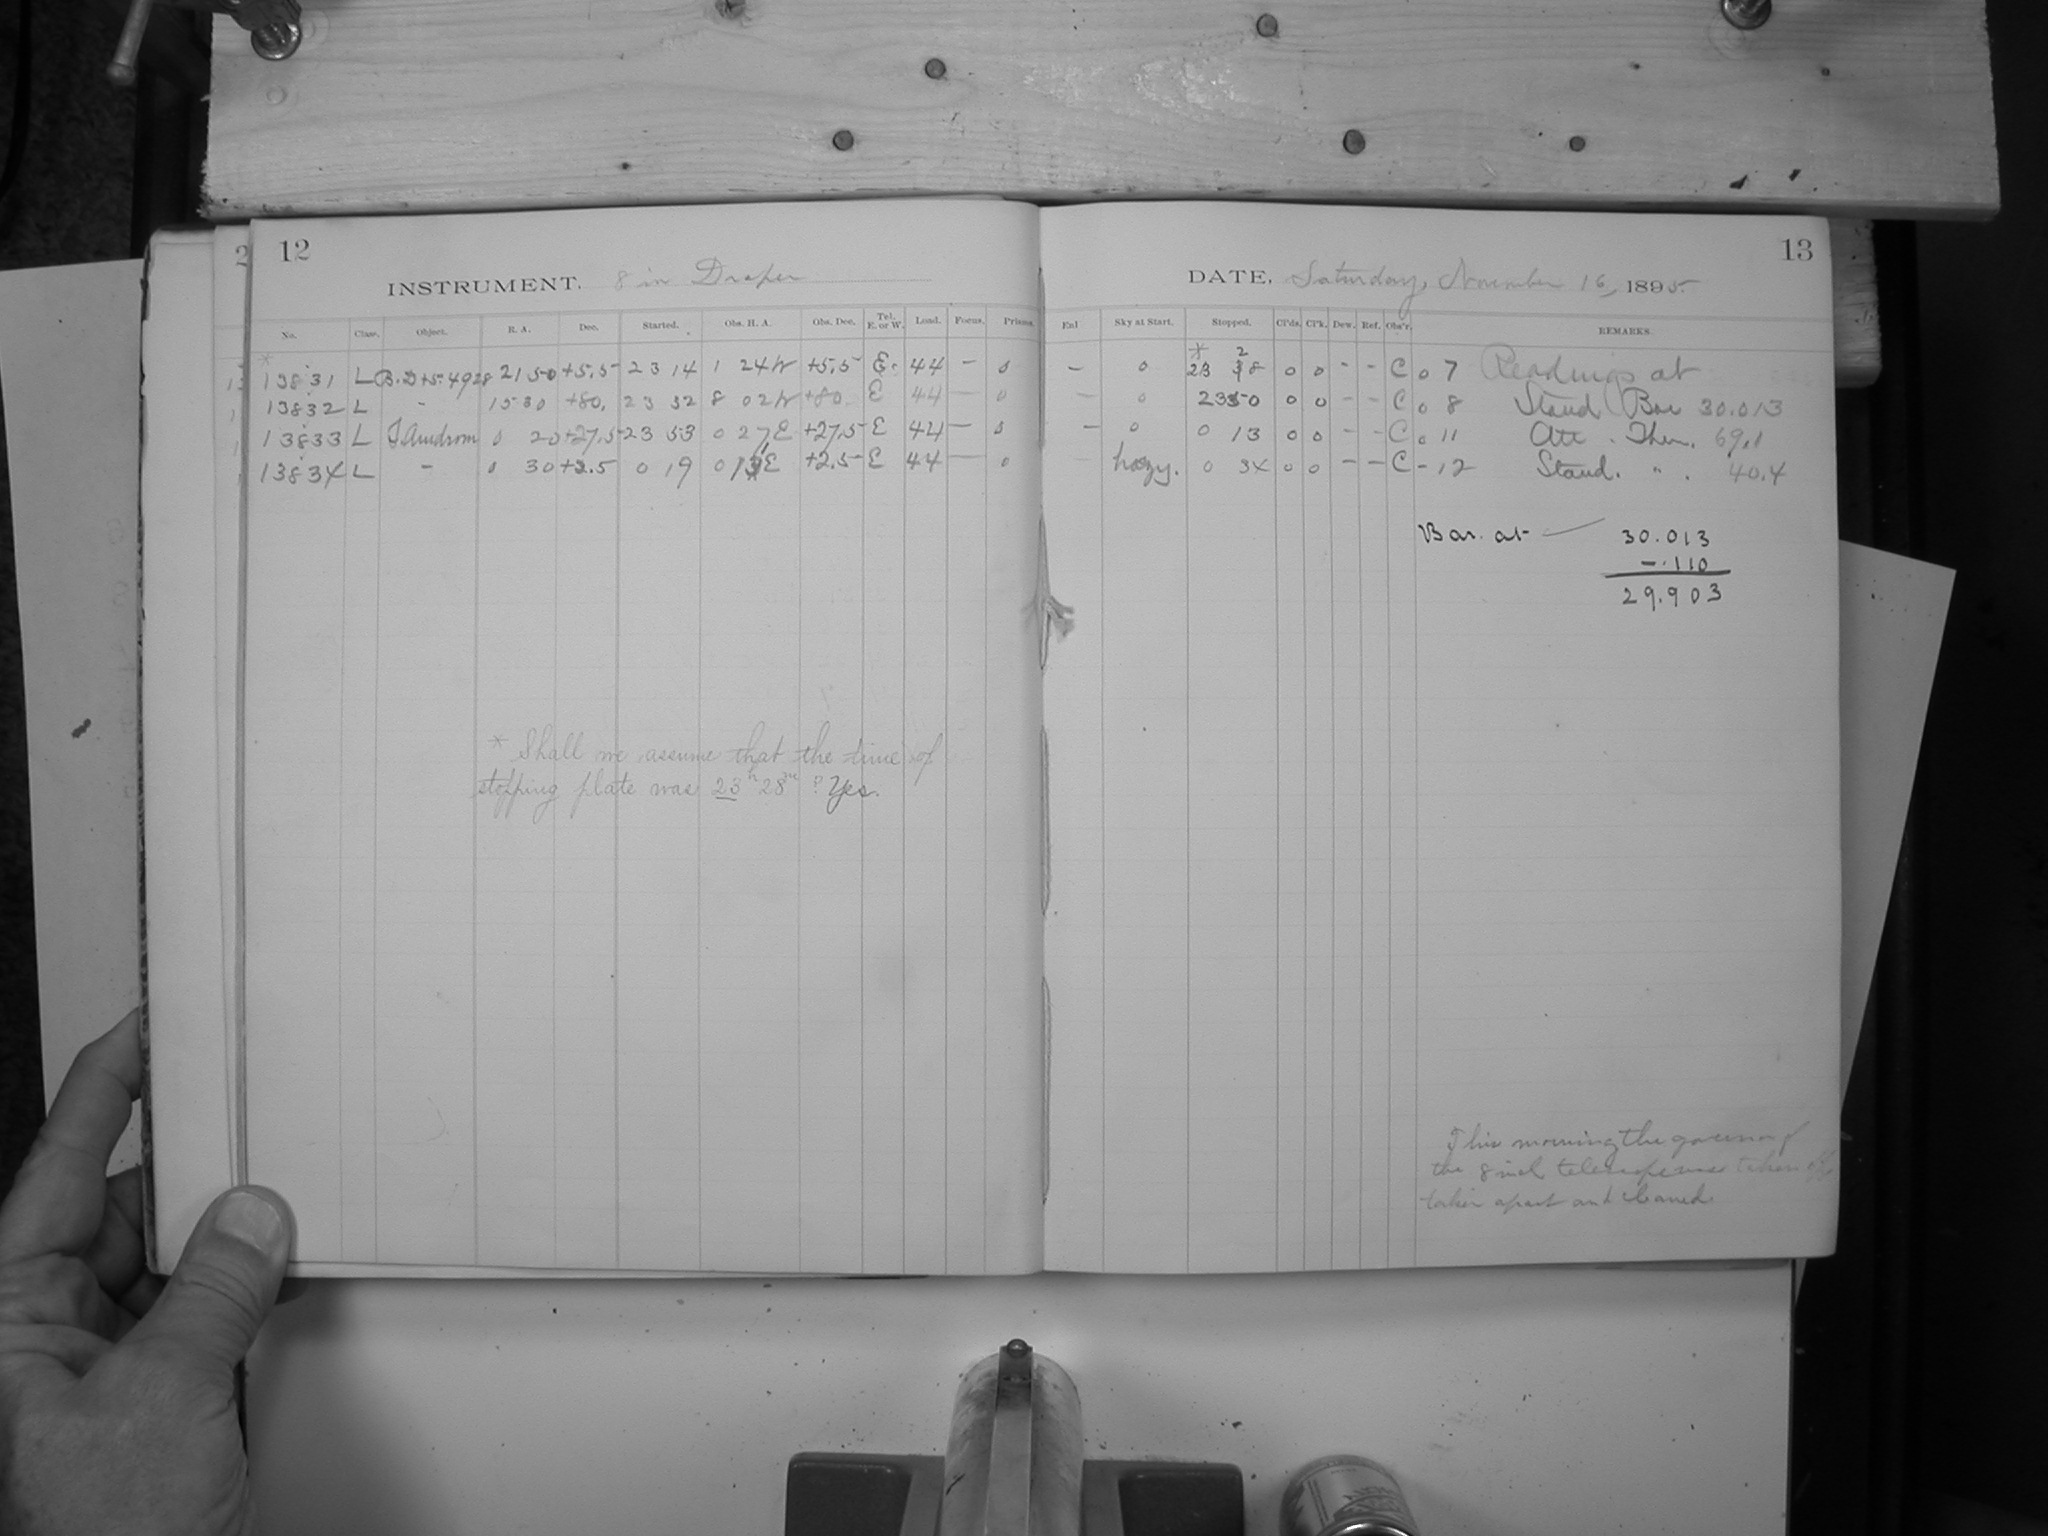 12
INSTRUMENT. 8 in Draper
No. Class. Object. R. A. Dec. Started. Obs. H. A. Obs. Dec. Tel. E. or W. Load. Focus. Prisms.
* 13831 L B.D+5.4928 21 50 +5.5 23 14 1 24W +5.5 E. 44 – 0
13832 L - 15 30 +80. 23 32 8 02W +80 E 44 – 0
13833 L 0 20 +27.5 23 53 0 27E +27.5 E 44 – 0
13834 L - 0 30 +2.5 0 19 0 E +2.5 E 44 – 0
* Shall we assume that the time of
stopping plate was 23h 28m? Yes.
13
DATE, Saturday, November 16, 1895.
Enl Sky at Start. Stopped. Cl'ds. Cl'k. Dew. Ref. Obs'r. REMARKS.
* 2
– 0 23 18 0 0 - - C 0 7 Readings at
– 0 23 50 0 0 - - C 0 8 Stand Bar 30.013
– 0 0 13 0 0 - - C 0 11 Att. Ther. 69.1
– hazy. 0 34 0 0 - - C - 12 Stand. " . 40.4
Bar. at 30.013
-.110
29.903
This morning the governor of
the 8 inch telescope was taken off
taken apart and cleaned